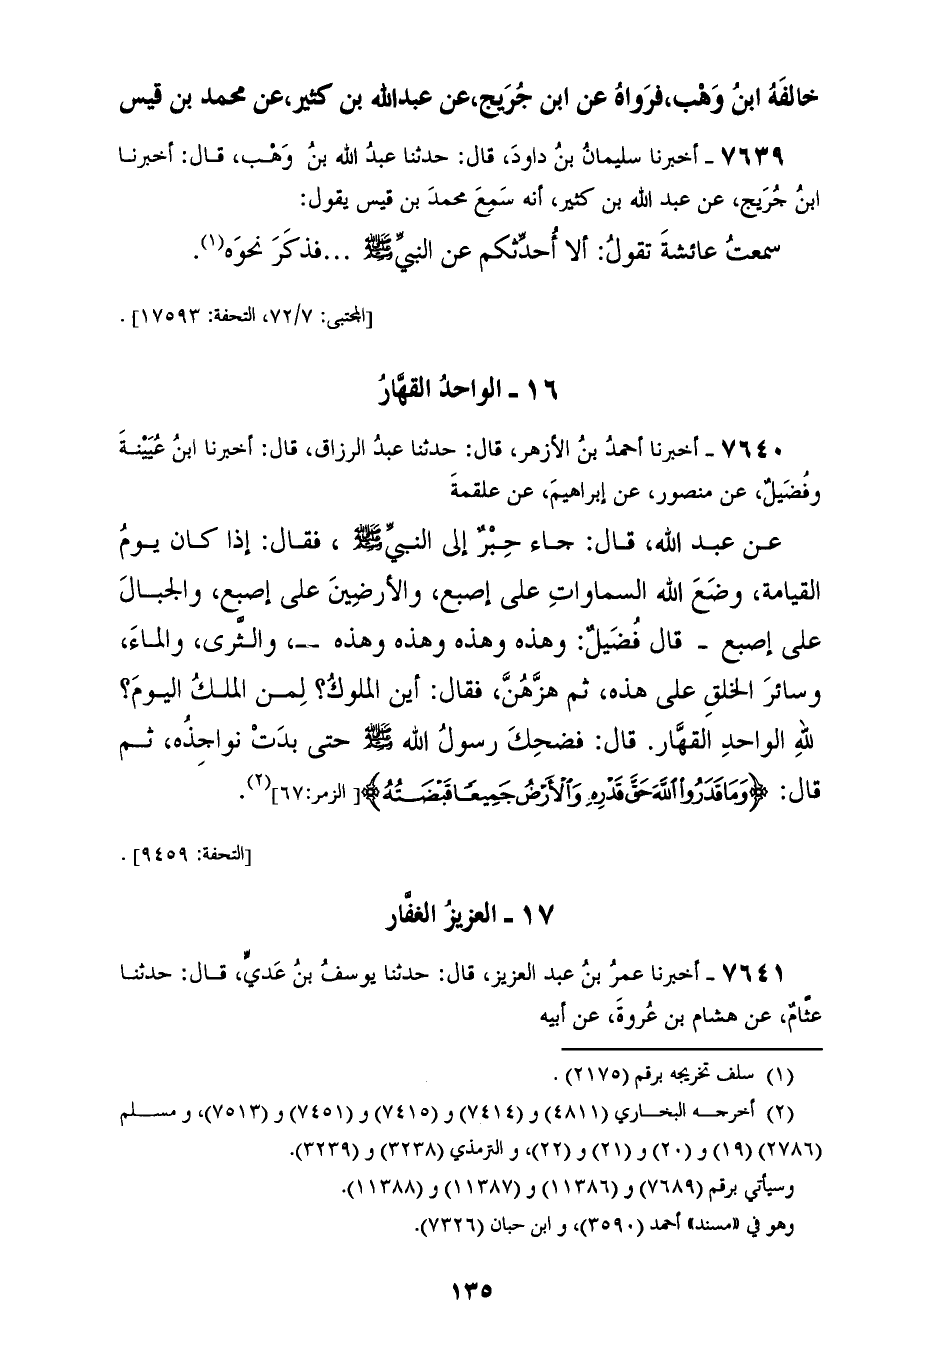 خالفَهُ ابنُ وَهْب، فرَواهُ عن ابن جُرَيج، عن عبدالله بن كثير، عن محمد بن قيس
٧٦٣٩ - أخبرنا سليمانُ بنُ داودَ، قال: حدثنا عبدُ الله بنُ وَهْب، قال: أخبرنا
ابنُ جُرَيج، عن عبد الله بن كثير، أنه سَمِعَ محمدَ بن قيس يقول:
سمعتُ عائشةَ تقولُ: ألا أُحدِّثكم عن النبيِّ ﷺ ... فذكَرَ نحوَه(١).
[المجتبى: ٧٢/٧، التحفة: ١٧٥٩٣].
١٦ - الواحدُ القهَّارُ
٧٦٤٠ - أخبرنا أحمدُ بنُ الأزهر، قال: حدثنا عبدُ الرزاق، قال: أخبرنا ابنُ عُيَيْنةَ
وفُضَيلٌ، عن منصور، عن إبراهيمَ، عن علقمةَ
عن عبد الله، قال: جاء حِبْرٌ إلى النبيِّ ﷺ ، فقال: إذا كان يومُ
القيامة، وضَعَ الله السماواتِ على إصبع، والأرضِينَ على إصبع، والجبالَ
على إصبع - قال فُضَيلٌ: وهذه وهذه وهذه وهذه -، والثَّرى، والماءَ،
وسائرَ الخلقِ على هذه، ثم هزَّهُنَّ، فقال: أين الملوكُ؟ لِمن الملكُ اليومَ؟
للهِ الواحدِ القهَّار. قال: فضحِكَ رسولُ الله ﷺ حتى بدَتْ نواجِذُه، ثم
قال: ﴿وَمَا قَدَرُوا۟ ٱللَّهَ حَقَّ قَدْرِهِۦ وَٱلْأَرْضُ جَمِيعًا قَبْضَتُهُ﴾ [الزمر: ٦٧](٢).
[التحفة: ٩٤٥٩].
١٧ - العزيزُ الغفَّار
٧٦٤١ - أخبرنا عمرُ بنُ عبد العزيز، قال: حدثنا يوسفُ بنُ عَديٍّ، قال: حدثنا
عثَّامٌ، عن هشام بن عُروةَ، عن أبيه
(١) سلف تخريجه برقم (٢١٧٥).
(٢) أخرجه البخاري (٤٨١١) و (٧٤١٤) و (٧٤١٥) و (٧٤٥١) و (٧٥١٣)، و مسلم
(٢٧٨٦) (١٩) و (٢٠) و (٢١) و (٢٢)، و الترمذي (٣٢٣٨) و (٣٢٣٩).
وسيأتي برقم (٧٦٨٩) و (١١٣٨٦) و (١١٣٨٧) و (١١٣٨٨).
وهو في «مسند» أحمد (٣٥٩٠)، و ابن حبان (٧٣٢٦).
١٣٥